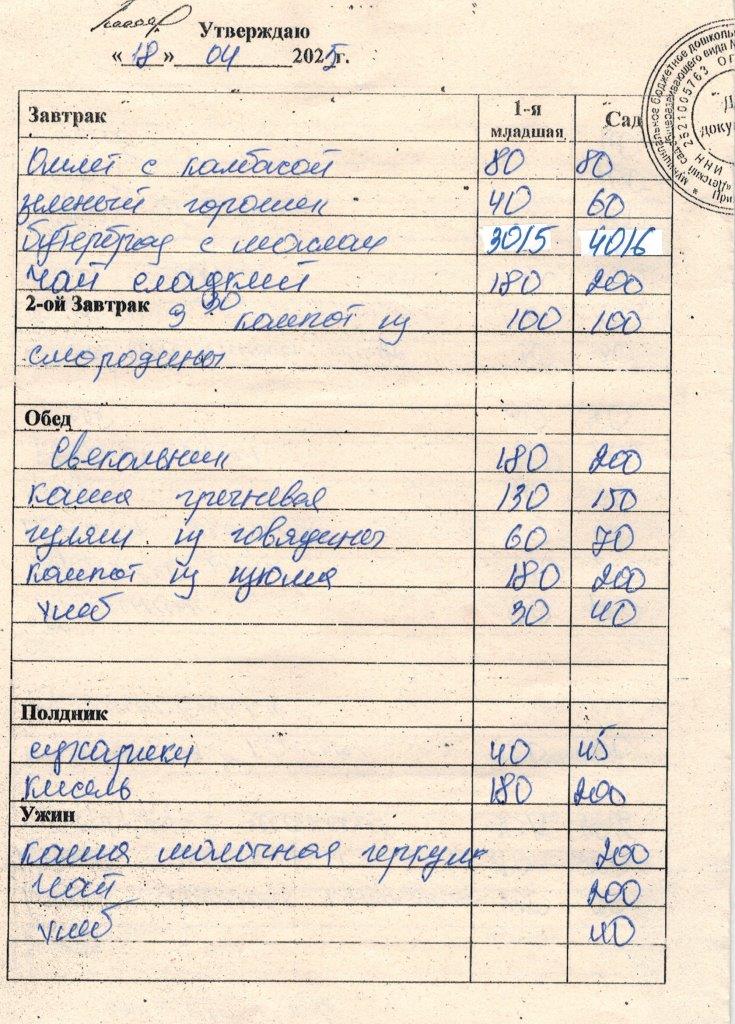 Утверждаю
« 18 » 04 2025г.
Завтрак 1-я младшая Сад
Омлет с колбасой 80 80
зеленый горошек 40 60
бутерброд с маслом 30/5 40/6
Чай сладкий 180 200
2-ой Завтрак 9 30 компот из 100 100
смородины
Обед
Свекольник 180 200
каша гречневая 130 150
гуляш из говядины 60 70
компот из изюма 180 200
хлеб 30 40
Полдник
сухарики 40 45
кисель 180 200
Ужин
каша молочная геркулес 200
Чай 200
хлеб 40
Муниципальное бюджетное дошколь
общеразвивающего вида №
2521005763
ИНН
«Детский сад
При
Д
доку